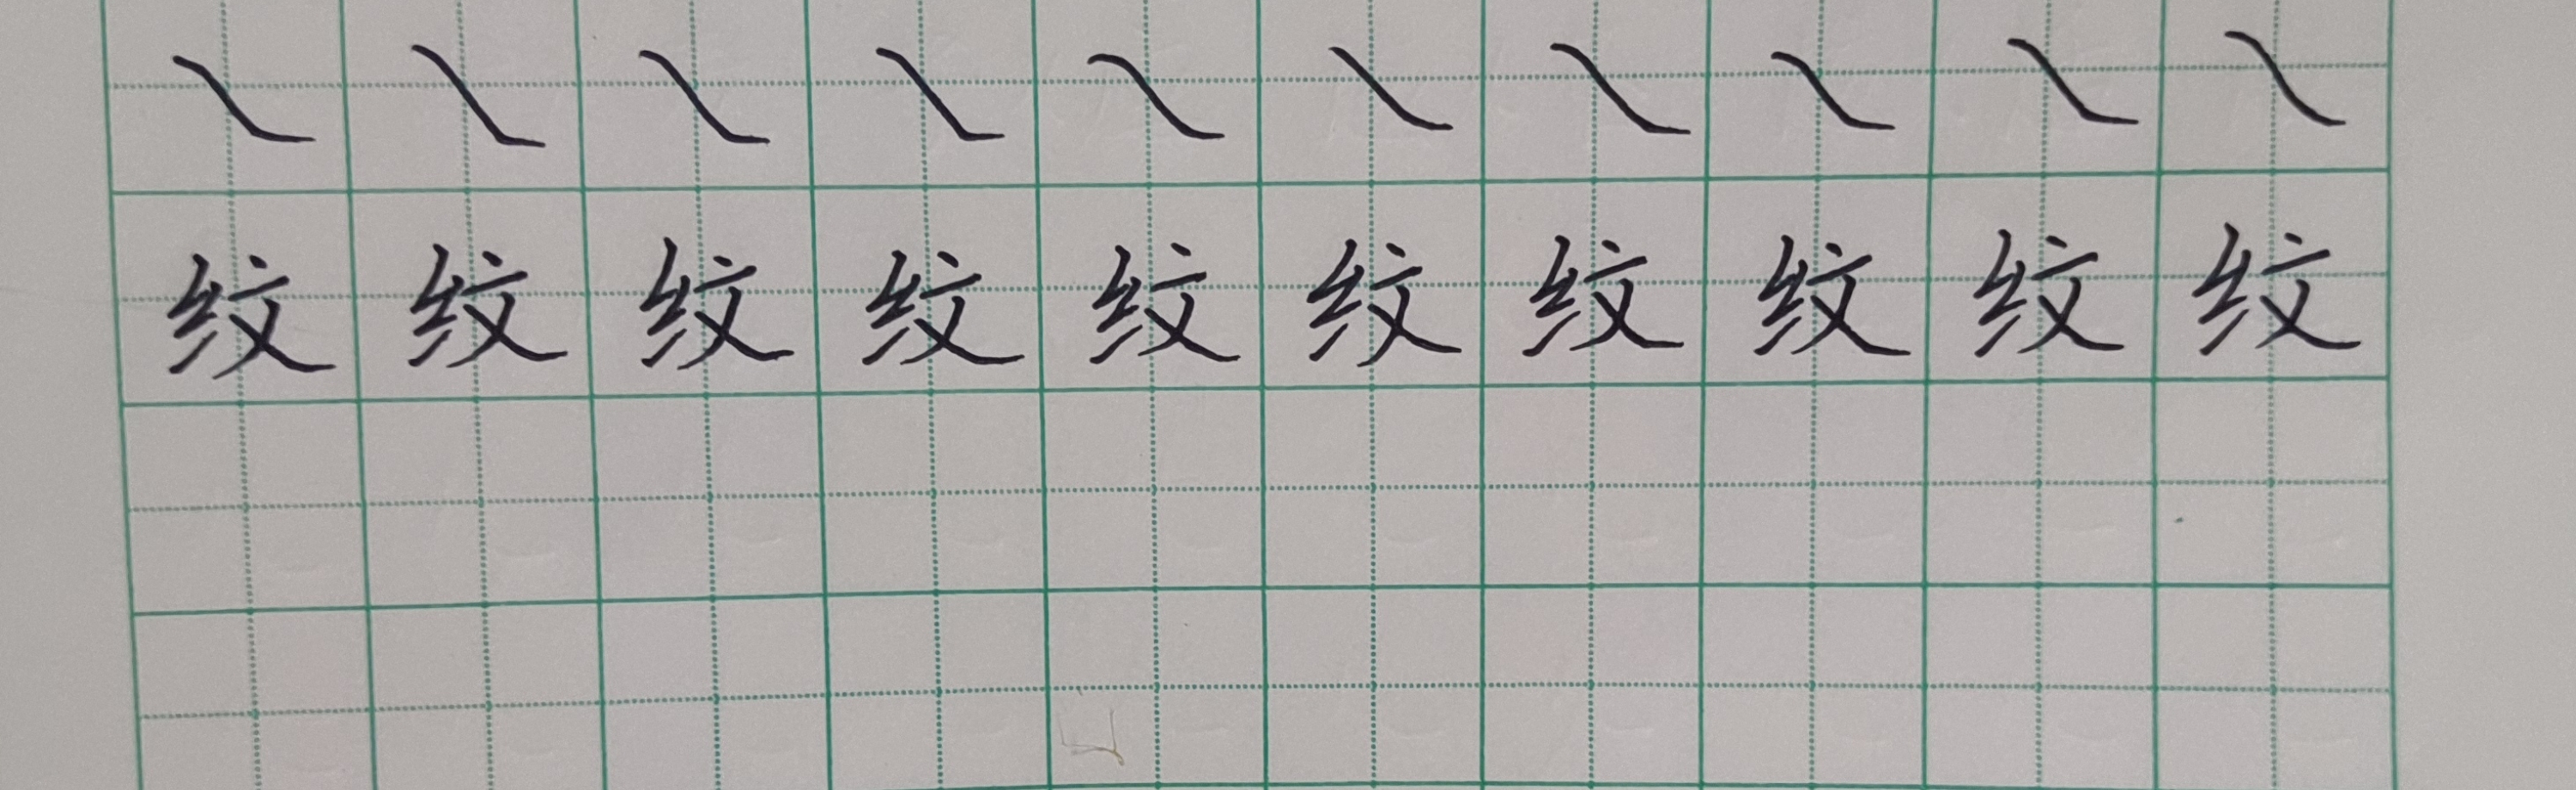 ㇏ ㇏ ㇏ ㇏ ㇏ ㇏ ㇏ ㇏ ㇏ ㇏
纹 纹 纹 纹 纹 纹 纹 纹 纹 纹